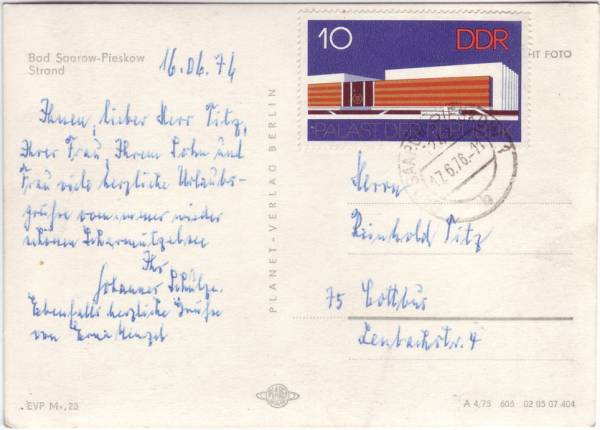 Bad Saarow-Pieskow
Strand
16.06.76
Ihnen, lieber Herr Titz,
Ihrer Frau, Ihrem Sohn und
Frau viele herzliche Urlaubs-
grüße vom immer wieder
schönen Scharmützelsee
Ihr
Johannes Schulze.
Ebenfalls herzliche Grüße
von Erna Menzel
EVP M -,25
PLANET-VERLAG BERLIN
10 DDR
PALAST DER REPUBLIK
HT FOTO
17.6.76.-11
Herrn
Reinhold Titz
75 Cottbus
Lenbachstr. 4
A 4/75 606 02 05 07 404